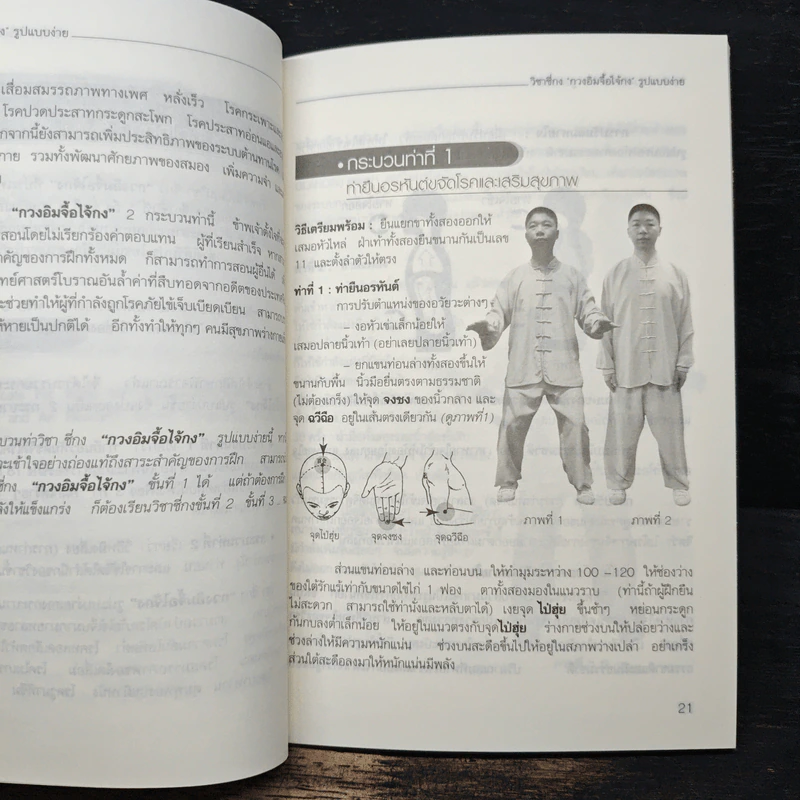 รูปแบบง่าย
เสื่อมสมรรถภาพทางเพศ หลั่งเร็ว โรคกระเพาะและ
โรคปวดประสาทกระดูกสะโพก โรคประสาทอ่อนแอและ
กจากนี้ยังสามารถเพิ่มประสิทธิภาพของระบบต้านทานโรค
กาย รวมทั้งพัฒนาศักยภาพของสมอง เพิ่มความจำ
"กวงอิมจื้อไจ้กง" 2 กระบวนท่านี้ ข้าพเจ้าตั้งใจ
สอนโดยไม่เรียกร้องค่าตอบแทน ผู้ที่เรียนสำเร็จ
ำคัญของการฝึกทั้งหมด ก็สามารถทำการสอนผู้อื่นได้
ทย์ศาสตร์โบราณอันล้ำค่าที่สืบทอดจากอดีตของประเทศ
ะช่วยทำให้ผู้ที่กำลังถูกโรคภัยไข้เจ็บเบียดเบียน
ห้หายเป็นปกติได้ อีกทั้งทำให้ทุกๆ คนมีสุขภาพร่างกาย
บวนท่าวิชา ชี่กง "กวงอิมจื้อไจ้กง" รูปแบบง่ายนี้
ะเข้าใจอย่างถ่องแท้ถึงสาระสำคัญของการฝึก
ชี่กง "กวงอิมจื้อไจ้กง" ขั้นที่ 1 ได้ แต่ถ้าต้องการ
ังให้แข็งแกร่ง ก็ต้องเรียนวิชาชี่กงขั้นที่ 2 ขั้นที่ 3
วิชาชี่กง 'กวงอิมจื้อไจ้กง' รูปแบบง่าย
• กระบวนท่าที่ 1
ท่ายืนอรหันต์ขจัดโรคและเสริมสุขภาพ
วิธีเตรียมพร้อม : ยืนแยกขาทั้งสองออกให้
เสมอหัวไหล่ ฝ่าเท้าทั้งสองยืนขนานกันเป็นเลข
11 และตั้งลำตัวให้ตรง
ท่าที่ 1 : ท่ายืนอรหันต์
การปรับตำแหน่งของอวัยวะต่างๆ
– งอหัวเข่าเล็กน้อยให้
เสมอปลายนิ้วเท้า (อย่าเลยปลายนิ้วเท้า)
– ยกแขนท่อนล่างทั้งสองขึ้นให้
ขนานกับพื้น นิ้วมือยืนตรงตามธรรมชาติ
(ไม่ต้องเกร็ง) ให้จุด จงชง ของนิ้วกลาง และ
จุด ฉวีฉือ อยู่ในเส้นตรงเดียวกัน (ดูภาพที่1)
จุดไป่ฮุ่ย
จุดจงชง
จุดฉวีฉือ
ภาพที่ 1
ภาพที่ 2
ส่วนแขนท่อนล่าง และท่อนบน ให้ทำมุมระหว่าง 100 –120 ให้ช่องว่าง
ของใต้รักแร้เท่ากับขนาดไข่ไก่ 1 ฟอง ตาทั้งสองมองในแนวราบ (ท่านี้ถ้าผู้ฝึกยืน
ไม่สะดวก สามารถใช้ท่านั่งและหลับตาได้) เงยจุด ไป่ฮุ่ย ขึ้นช้าๆ หย่อนกระดูก
ก้นกบลงต่ำเล็กน้อย ให้อยู่ในแนวตรงกับจุดไป่ฮุ่ย ร่างกายช่วงบนให้ปล่อยวางและ
ช่วงล่างให้มีความหนักแน่น ช่วงบนสะดือขึ้นไปให้อยู่ในสภาพว่างเปล่า อย่าเกร็ง
ส่วนใต้สะดือลงมาให้หนักแน่นมีพลัง
21